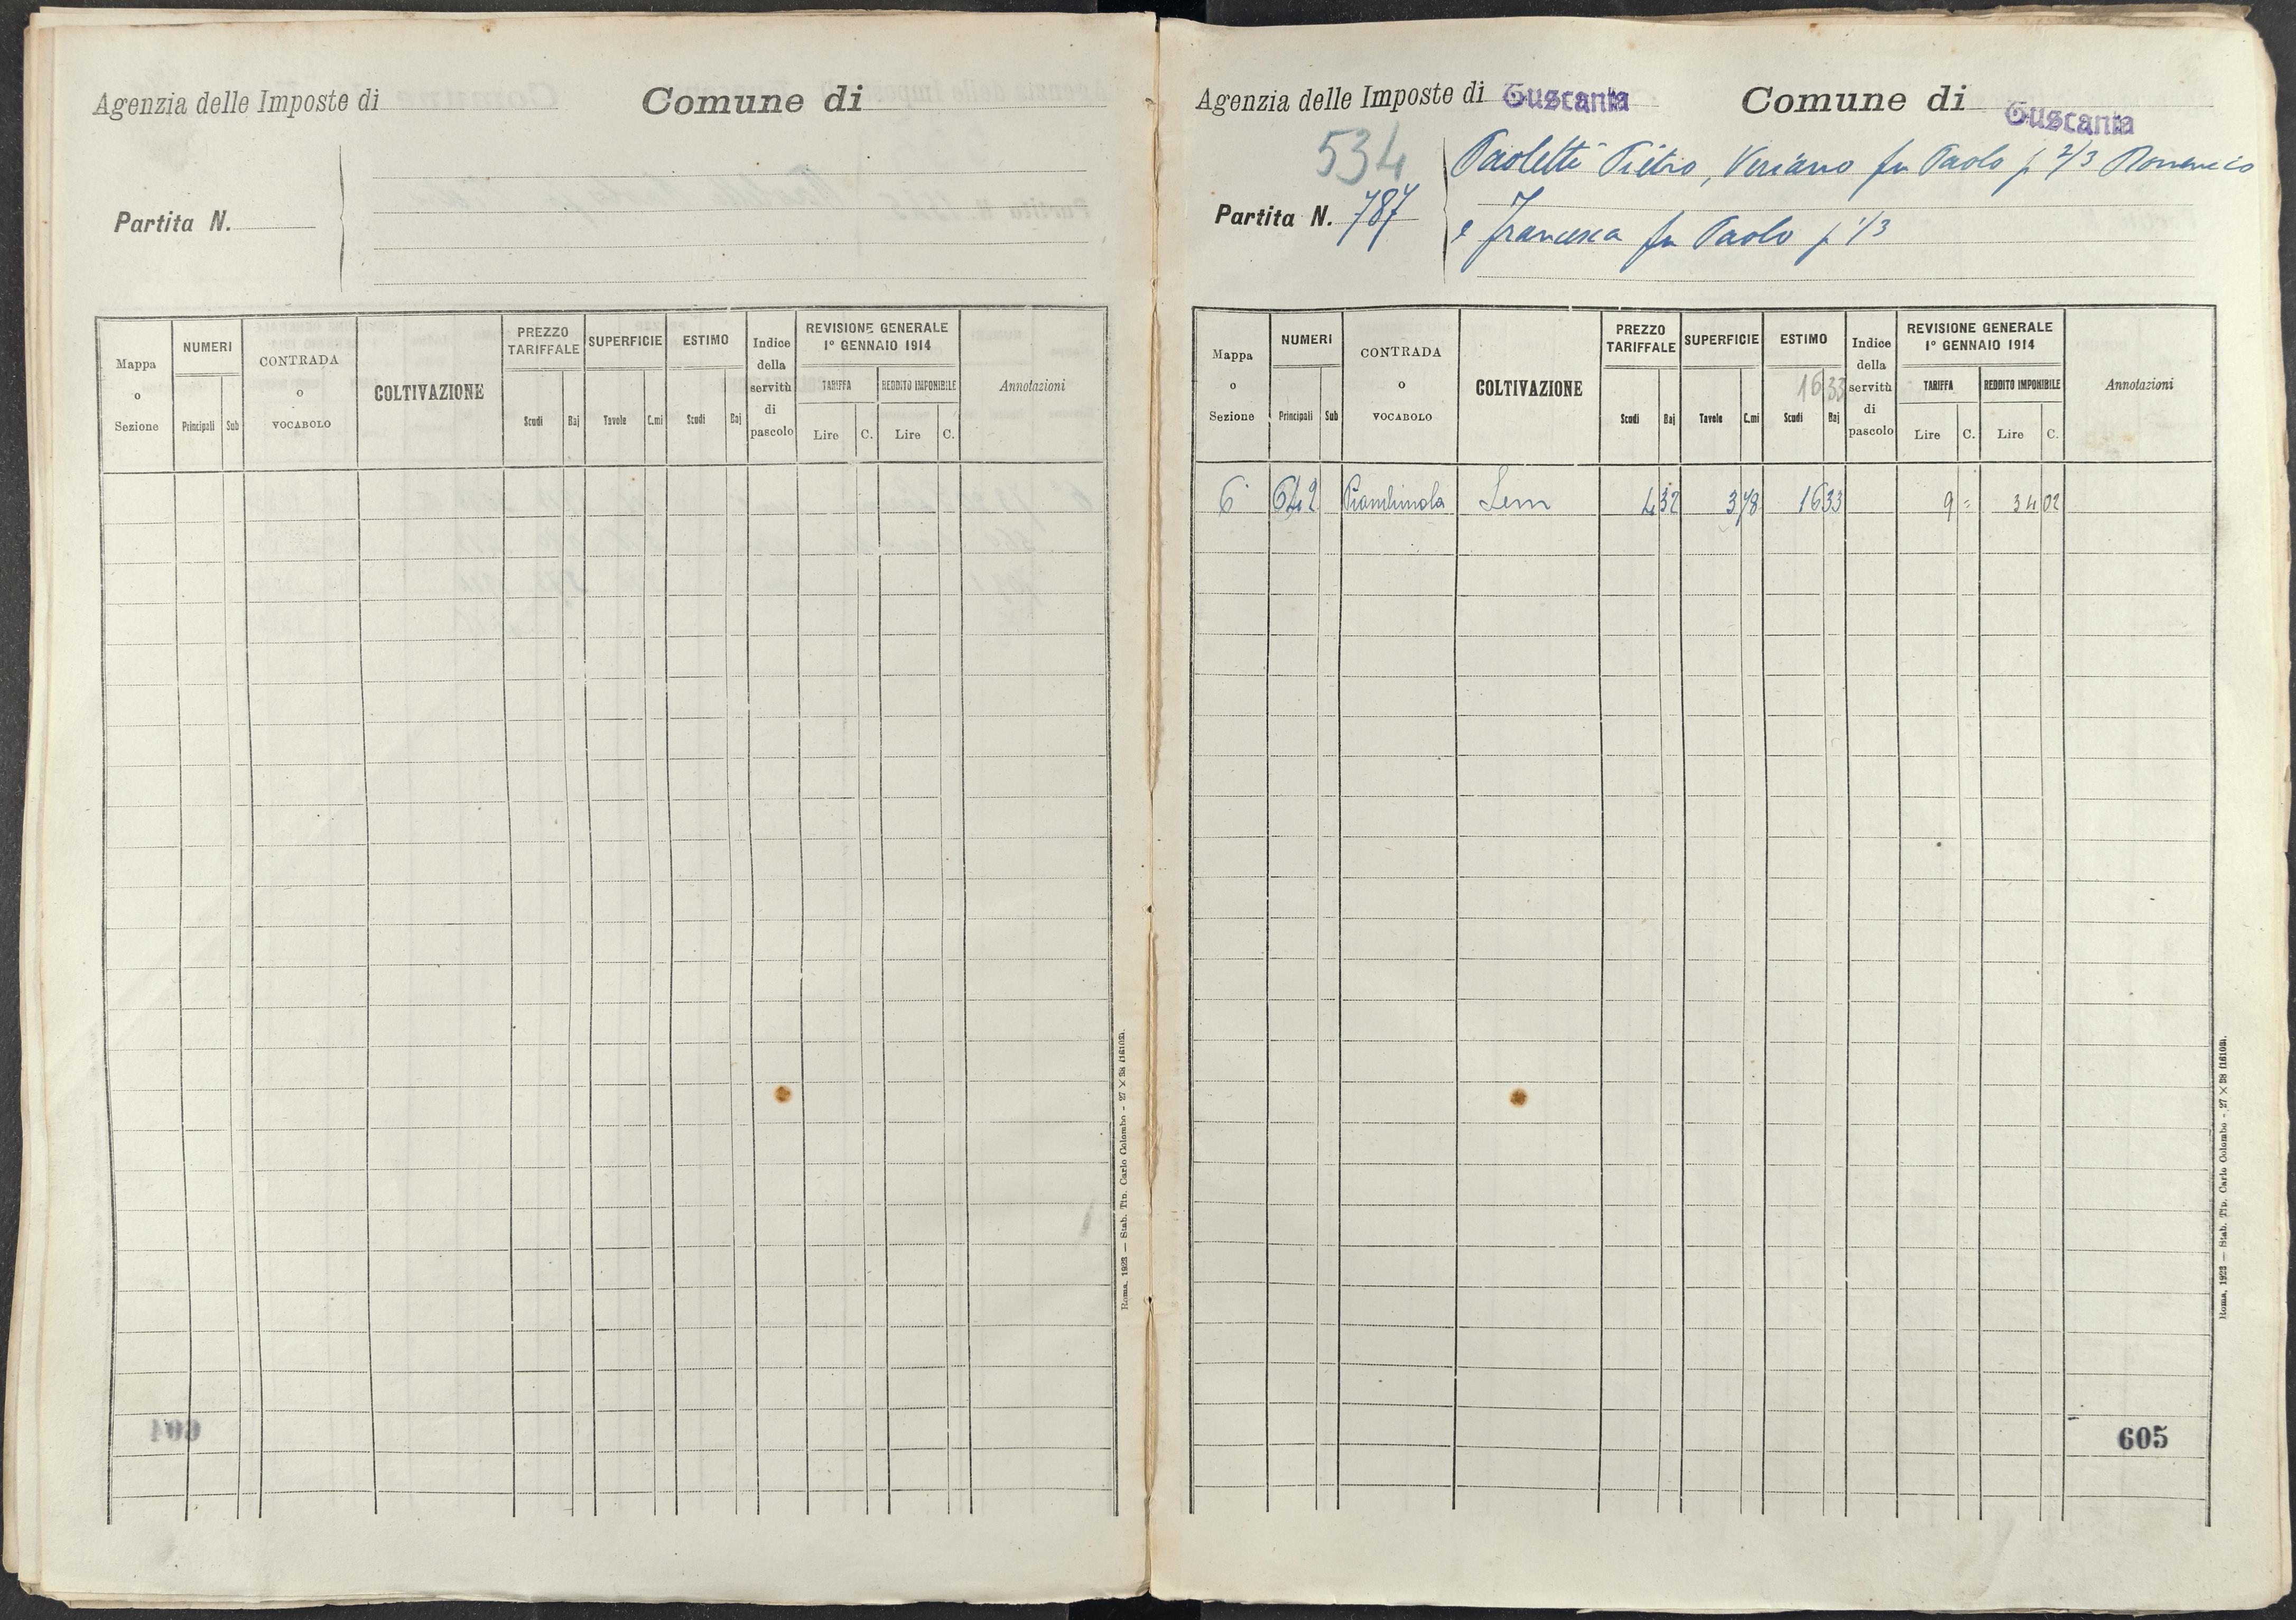 Agenzia delle Imposte di
Comune di
Partita N.
Mappa o Sezione
NUMERI
Principali Sub
CONTRADA o VOCABOLO
COLTIVAZIONE
PREZZO TARIFFALE
Scudi Baj
SUPERFICIE
Tavole C.mi
ESTIMO
Scudi Baj
Indice della servitù di pascolo
REVISIONE GENERALE
1° GENNAIO 1914
TARIFFA
Lire C.
REDDITO IMPONIBILE
Lire C.
Annotazioni
Roma, 1923 — Stab. Tip. Carlo Colombo - 27 × 38 (16102).
Agenzia delle Imposte di Tuscania
Comune di Tuscania
534
Partita N. 787
Paoletti Pietro, Veriano fu Paolo p 2/3 Domenico
e Francesca fu Paolo p 1/3
Mappa o Sezione
NUMERI
Principali Sub
CONTRADA o VOCABOLO
COLTIVAZIONE
PREZZO TARIFFALE
Scudi Baj
SUPERFICIE
Tavole C.mi
ESTIMO
1633
Scudi Baj
Indice della servitù di pascolo
REVISIONE GENERALE
1° GENNAIO 1914
TARIFFA
Lire C.
REDDITO IMPONIBILE
Lire C.
Annotazioni
6 642 Sem 4 32 3 78 16 33 9 = 34 02
605
Roma, 1923 — Stab. Tip. Carlo Colombo - 27 × 38 (16102).